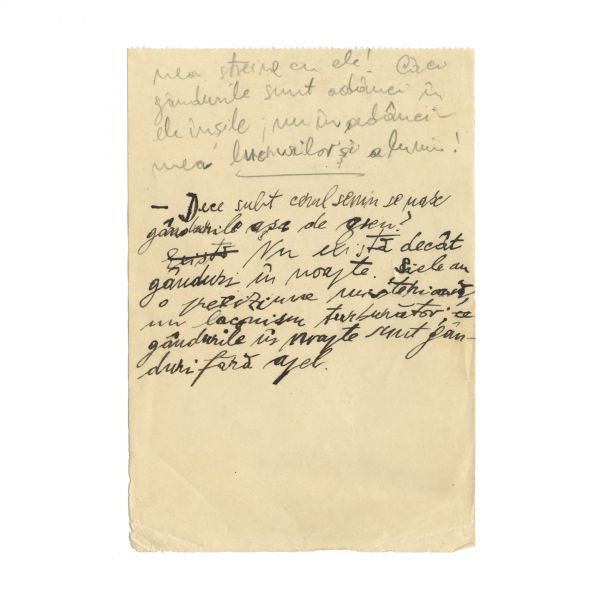 mea streine cu ele! Căci
gândurile sunt adânci în
ele însile, nu în adânci-
mea lucrurilor și a lumii!
— Dece subt cerul senin se nasc
gândurile așa de greu?
Nu există decât
gânduri în noapte. Și ele au
o preciziune misterioasă,
un laconism turburător;
gândurile în noapte sunt gân-
duri fără apel.